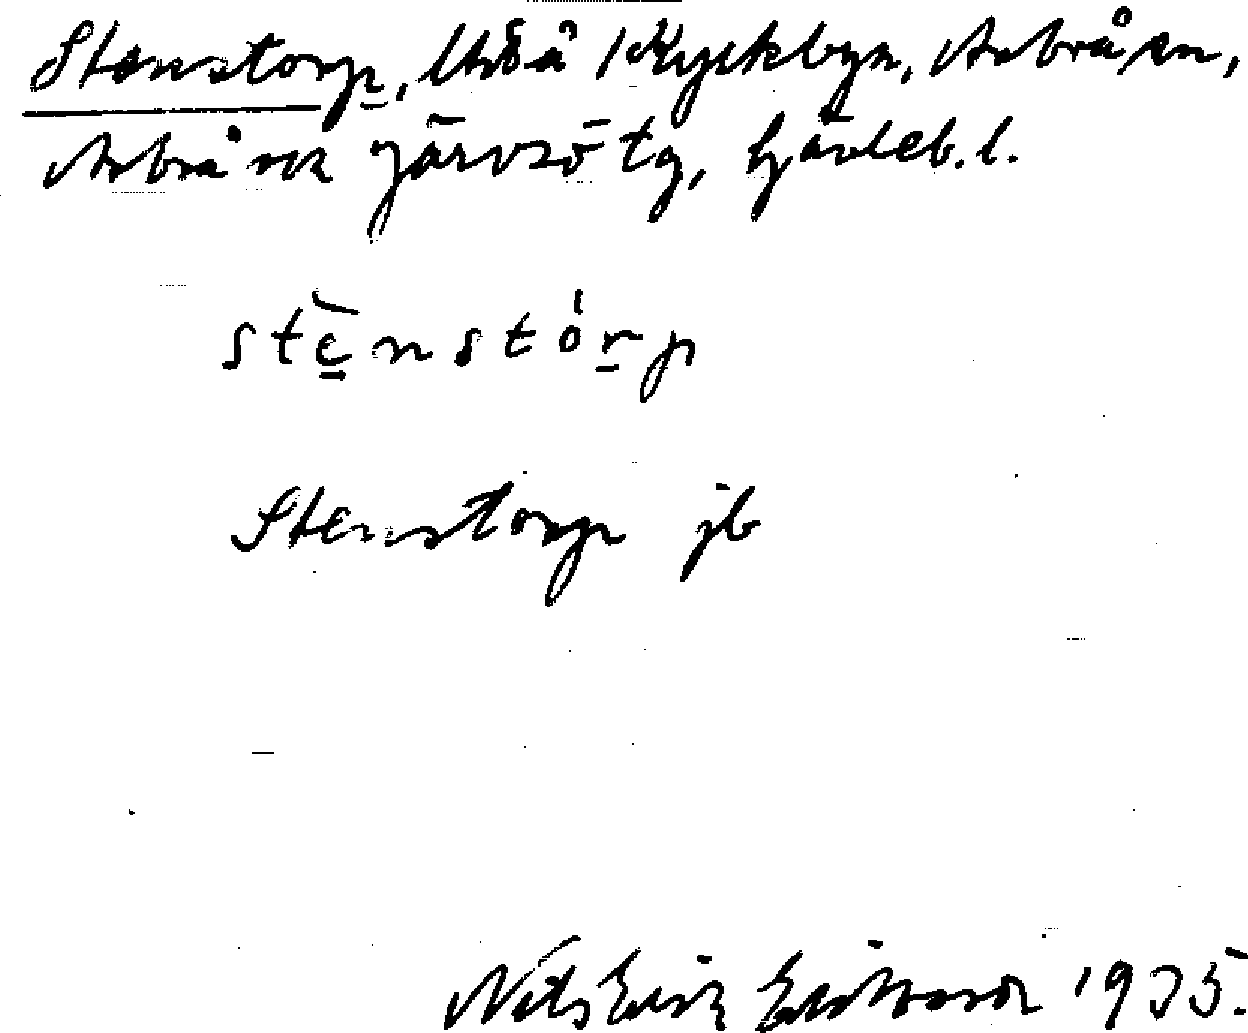 Stenstorp, i Kyrkbyn, Arbrå sn,
Arbrå och Järvsö tg, Gävleb. l.
stenstòrp
Stenstorp jb
Nils Erik Eriksson 1935.